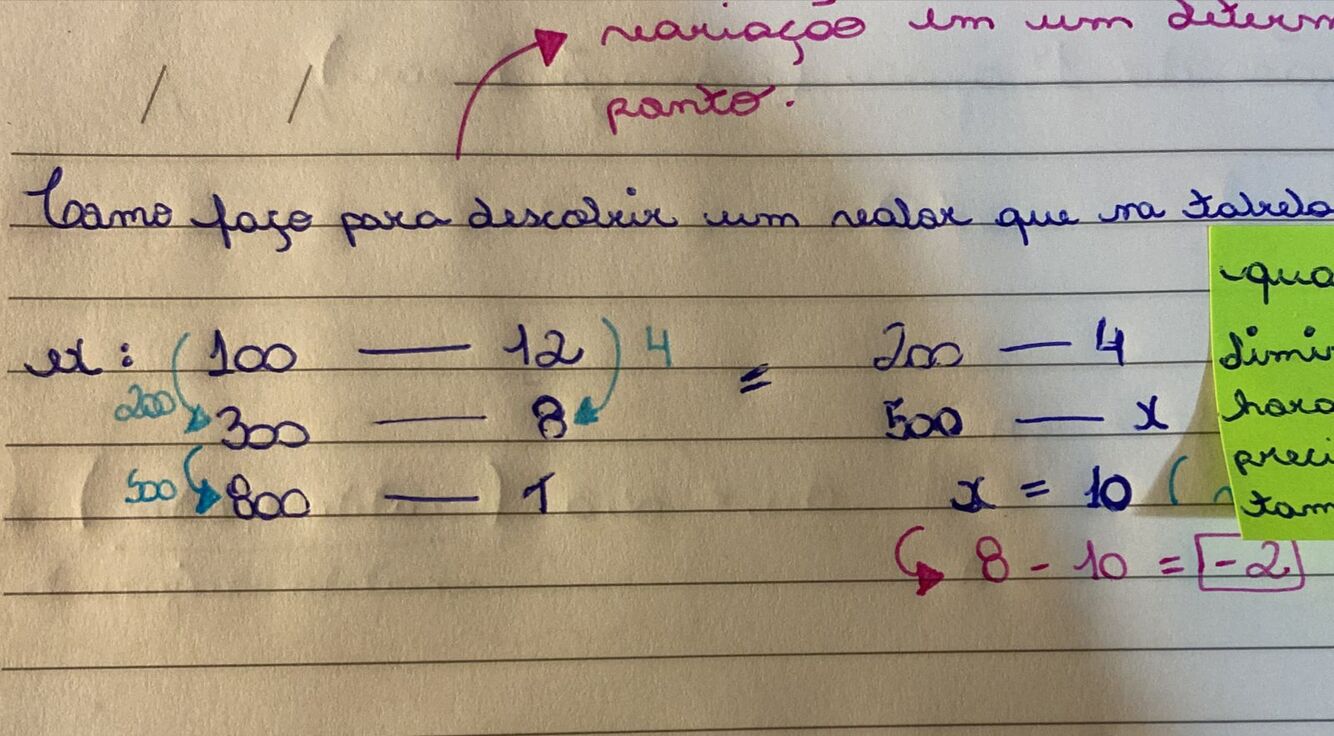 variação em um determ
ponto.
/ /
Como faço para descobrir um valor que na tabela
ex: 100 — 12 4 = 200 — 4
200 300 — 8 500 — x
500 800 — T x = 10 (
8 - 10 = -2
qua
dimi
hora
preci
tam